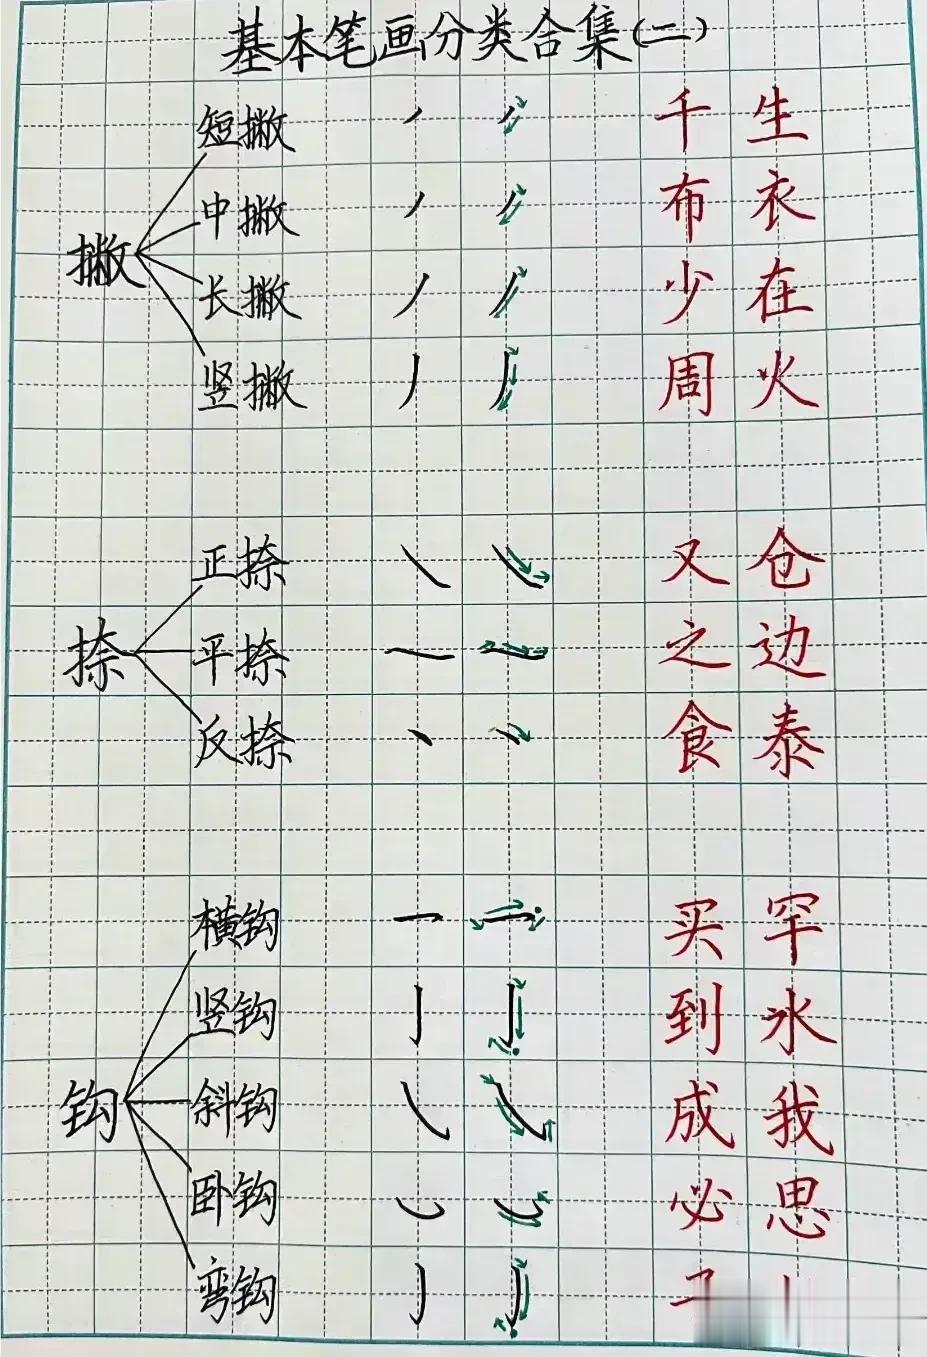 基本笔画分类合集(二)
短撇 千 生
中撇 布 衣
撇
长撇 少 在
竖撇 周 火
正捺 又 仓
捺 平捺 之 边
反捺 食 泰
横钩 买 罕
竖钩 到 水
钩 斜钩 成 我
卧钩 必 思
弯钩